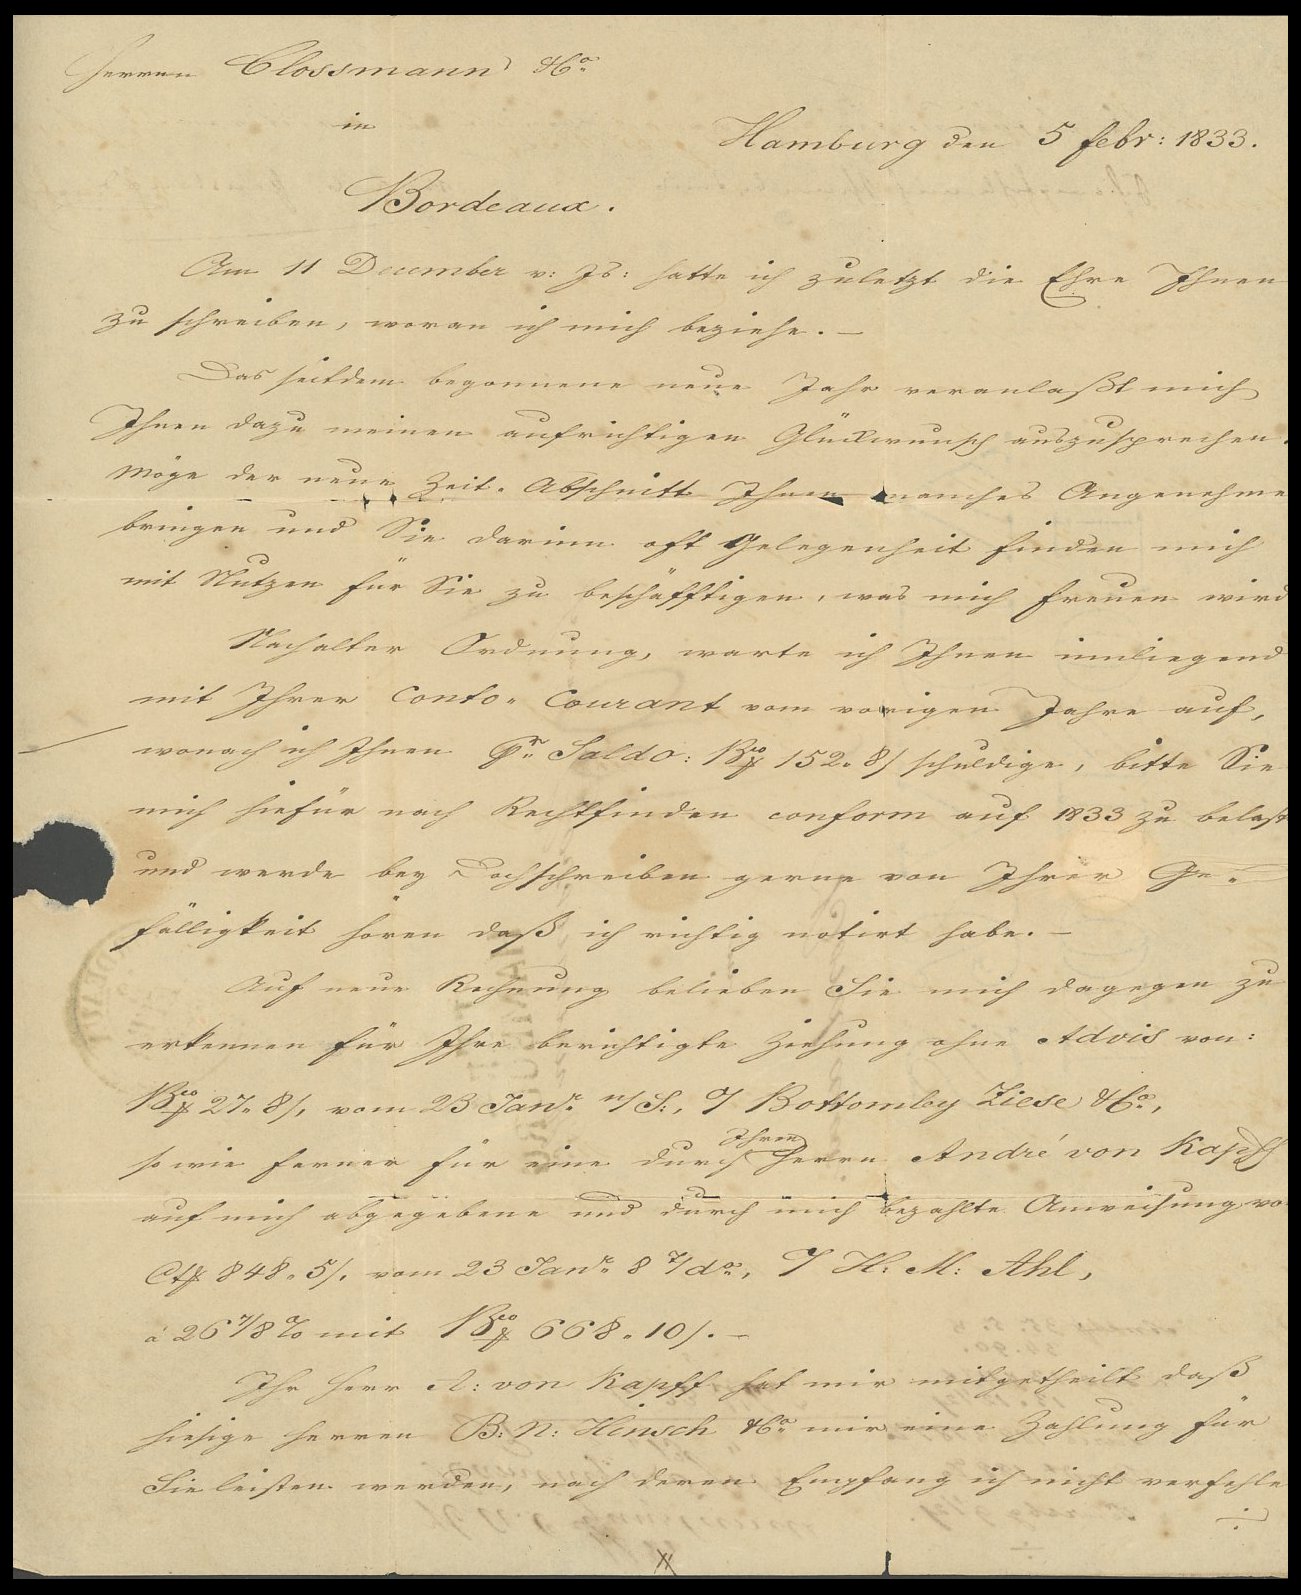 Herren Clossmann & Co.
in
Hamburg den 5 febr: 1833.
Bordeaux.
Am 11 December v: Js: hatte ich zuletzt die Ehre Ihnen
zu schreiben, woran ich mich beziehe. —
Das seitdem begonnene neue Jahr veranlaßt mich
Ihnen dazu meinen aufrichtigen Glückwunsch auszusprechen.
Möge der neue Zeit-Abschnitt Ihnen manches Angenehme
bringen und Sie darinn oft Gelegenheit finden mich
mit Nutzen für Sie zu beschäfftigen, was mich freuen wird
Nach alter Ordnung, warte ich Ihnen innliegend
mit Ihrer Conto-Courant vom vorigen Jahre auf,
wonach ich Ihnen pr Saldo: Bco ₰ 152.8/ schuldige, bitte Sie
mich hiefür nach Rechtfinden conform auf 1833 zu belast
und werde bey Dochschreiben gerne von Ihrer Ge-
fälligkeit hören daß ich richtig notirt habe. —
Auf neue Rechnung belieben Sie mich dagegen zu
erkennen für Ihre berichtigte Ziehung ohne Advis von:
Bco ₰ 27.8/. vom 23 Janr. n/S:, O/ Bottomley Ziese & Co.,
so wie ferner für eine durch Ihren Herrn André von Kapff
auf mich abgegebene und durch mich bezahlte Anweisung vo
Ct ₰ 848.5/. vom 23 Janr. 8 T/do., O/ H: M: Ahl,
à 26 7/8 % mit Bco ₰ 668.10/. —
Ihr Herr A: von Kapff hat mir mitgetheilt daß
hiesige Herren B: N: Hinsch & Co. mir eine Zahlung für
Sie leisten werden, nach deren Empfang ich nicht verfehle